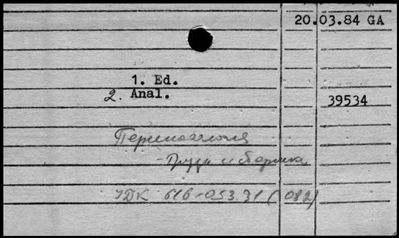 20.03.84 GA
1. Ed.
2. Anal.
39534
УДК 616-053.31 (082)